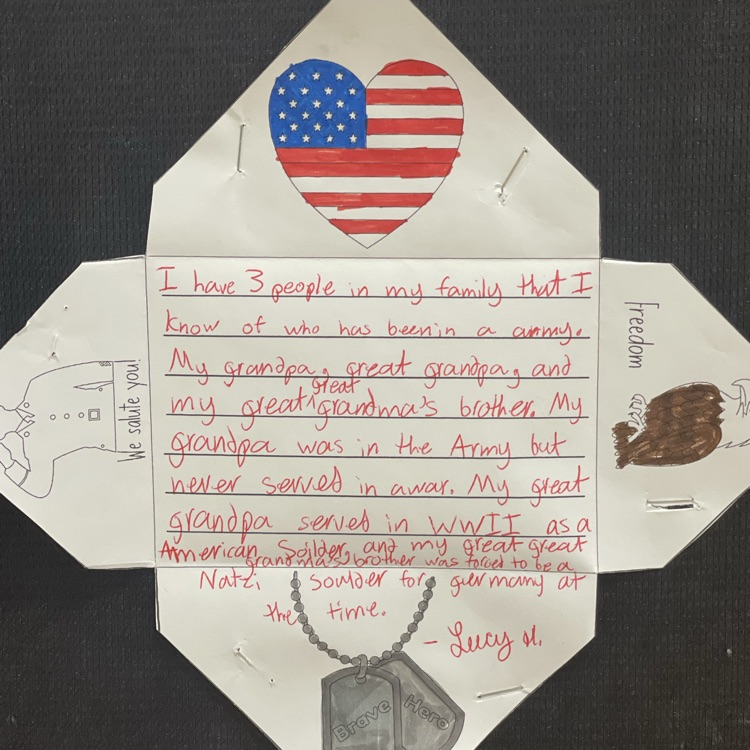 I have 3 people in my family that I
know of who has been in a army.
My grandpa, great grandpa, and
great
my great grandma's brother. My
grandpa was in the Army but
never served in a war. My great
grandpa served in WWII as a
American Soilder, and my great great
grandma's brother was forced to be a
Natzi soulder for germany at
the time.
- Lucy M.
We salute you!
Freedom
Brave
Hero